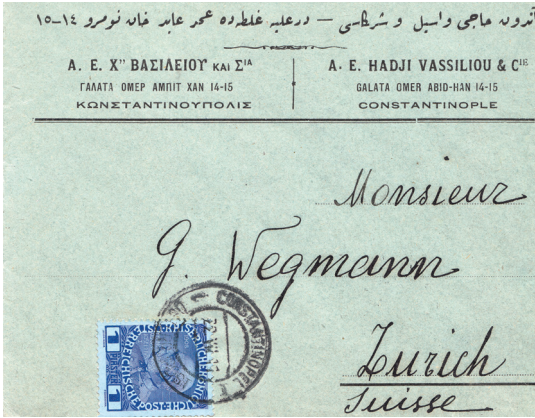 آندون حاجی واسیل و شرکاسی — درعلیه غلطه‌ده عمر عابد خان نومرو ١٤–١٥
Α. Ε. Χ" ΒΑΣΙΛΕΙΟΥ ΚΑΙ ΣΙΑ
ΓΑΛΑΤΑ ΟΜΕΡ ΑΜΠΙΤ ΧΑΝ 14-15
ΚΩΝΣΤΑΝΤΙΝΟΥΠΟΛΙΣ
A. E. HADJI VASSILIOU & CIE
GALATA OMER ABID-HAN 14-15
CONSTANTINOPLE
Monsieur
G. Wegmann
Zurich
Suisse
CONSTANTINOPEL
1 PIASTER 1